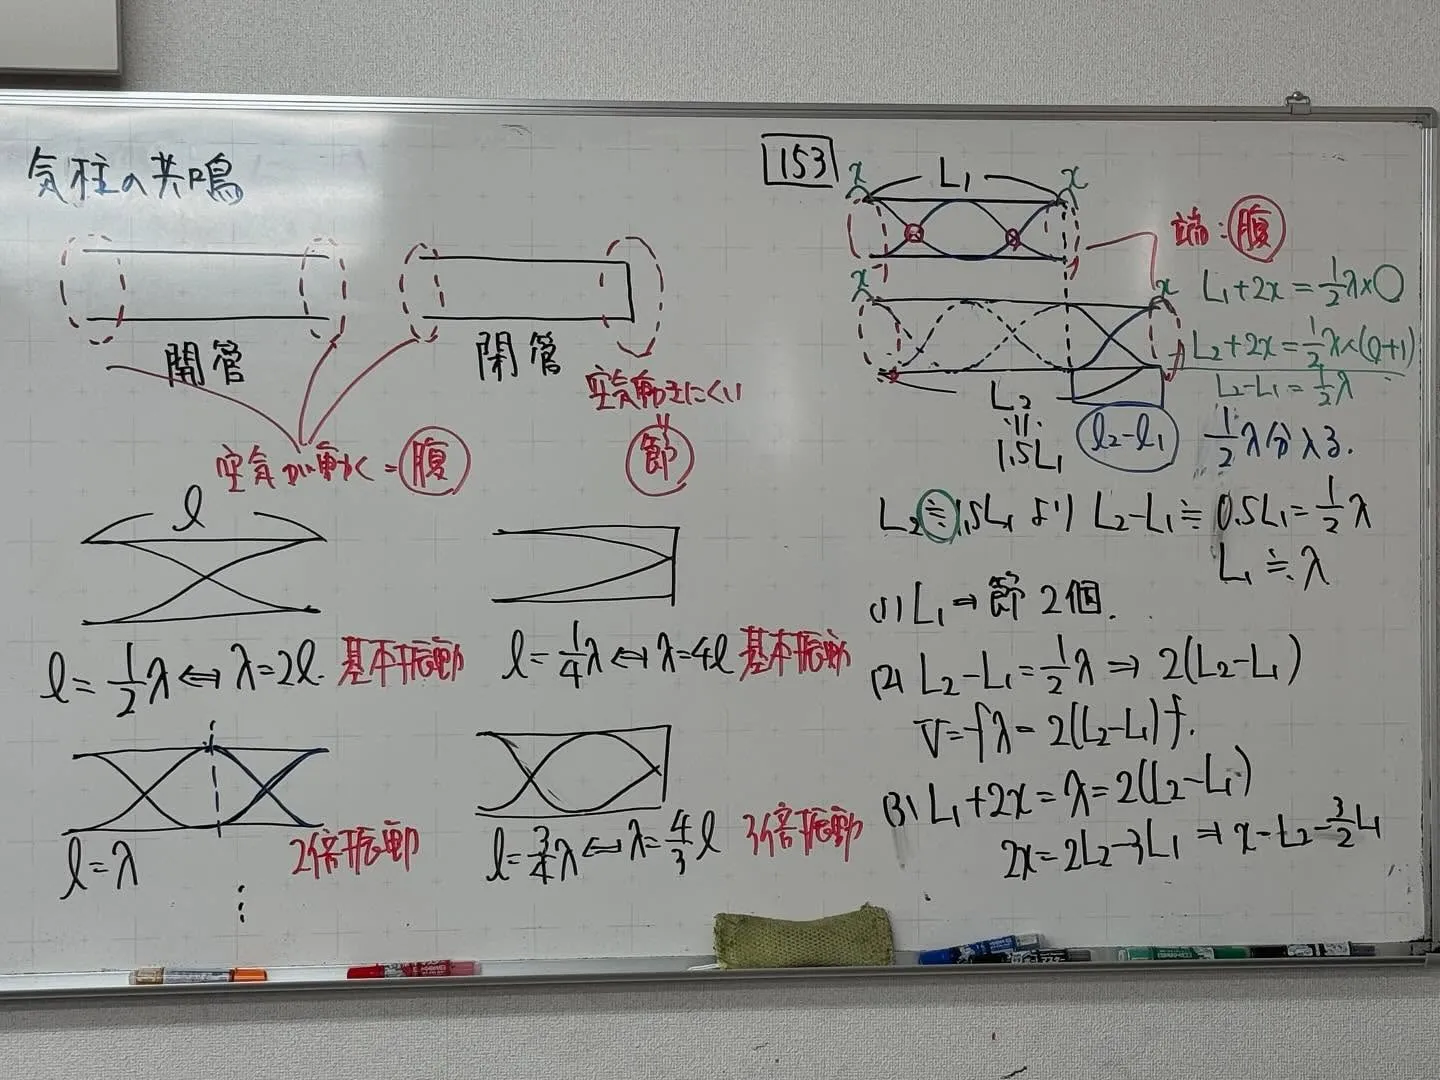 気柱の共鳴
開管
閉管
空気が動く=腹
空気動きにくい
節
l
l=1/2λ⇔λ=2l. 基本振動
l=1/4λ⇔λ=4l 基本振動
l=λ
2倍振動
l=3/4λ⇔λ=4/3l 3倍振動
⋮
153
x L₁ x
端:腹
x x
L₁+2x=1/2λ×○
L₂+2x=1/2λ×(○+1)
L₂-L₁=1/2λ
L₂
॥
1.5L₁
l₂-l₁
1/2λ分入る.
L₂≒1.5L₁より L₂-L₁≒0.5L₁=1/2λ
L₁≒λ
(1) L₁⇒節2個.
(2) L₂-L₁=1/2λ⇒2(L₂-L₁)
V=fλ=2(L₂-L₁)f.
(3) L₁+2x=λ=2(L₂-L₁)
2x=2L₂-3L₁⇒x-L₂-3/2L₁